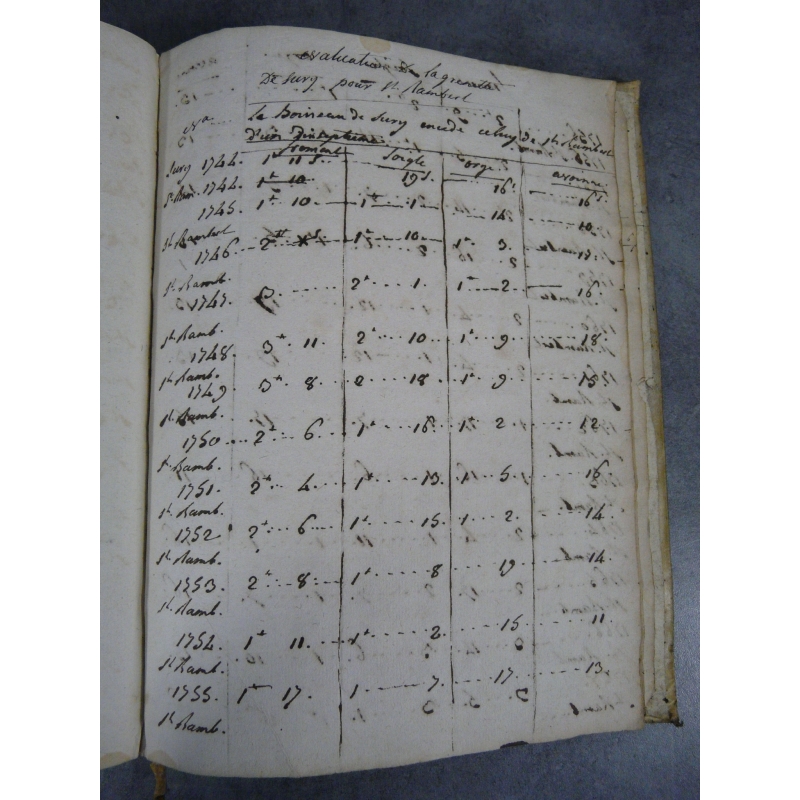 evaluation De la grenette
De Sury pour St Rambert
le boisseau de Sury excede celuy de St Rambert
d'un dixseptieme
froment Seigle orge avoine
Sury 1744. 1# 11 s. 19 s. 16 s. 16 s.
St Ram. 1744. 1# 10
1745. 1# 10 1# 1 14 10
St Rambert
1746 2# 1# 10 1# 3. 13
St Ramb.
1747. 3 2# 1. 1# 2. 16.
St Ramb.
1748. 3# 11. 2# 10 1# 9 18.
St Ramb.
1749 3# 8. 2 18. 1# 9 15
St Ramb.
1750 2# 6. 1# 18. 1# 2 12
St Ramb.
1751. 2# 4. 1# 13. 1 5. 16
St Ramb.
1752 2# 6 1# 15. 1 2. 14
St Ramb.
1753. 2# 8. 1# 8 19 14.
St Ramb.
1754. 1# 11. 1# 2. 15 11
St Ramb.
1755. 1# 17. 1 7. 17. 13.
St Ramb.